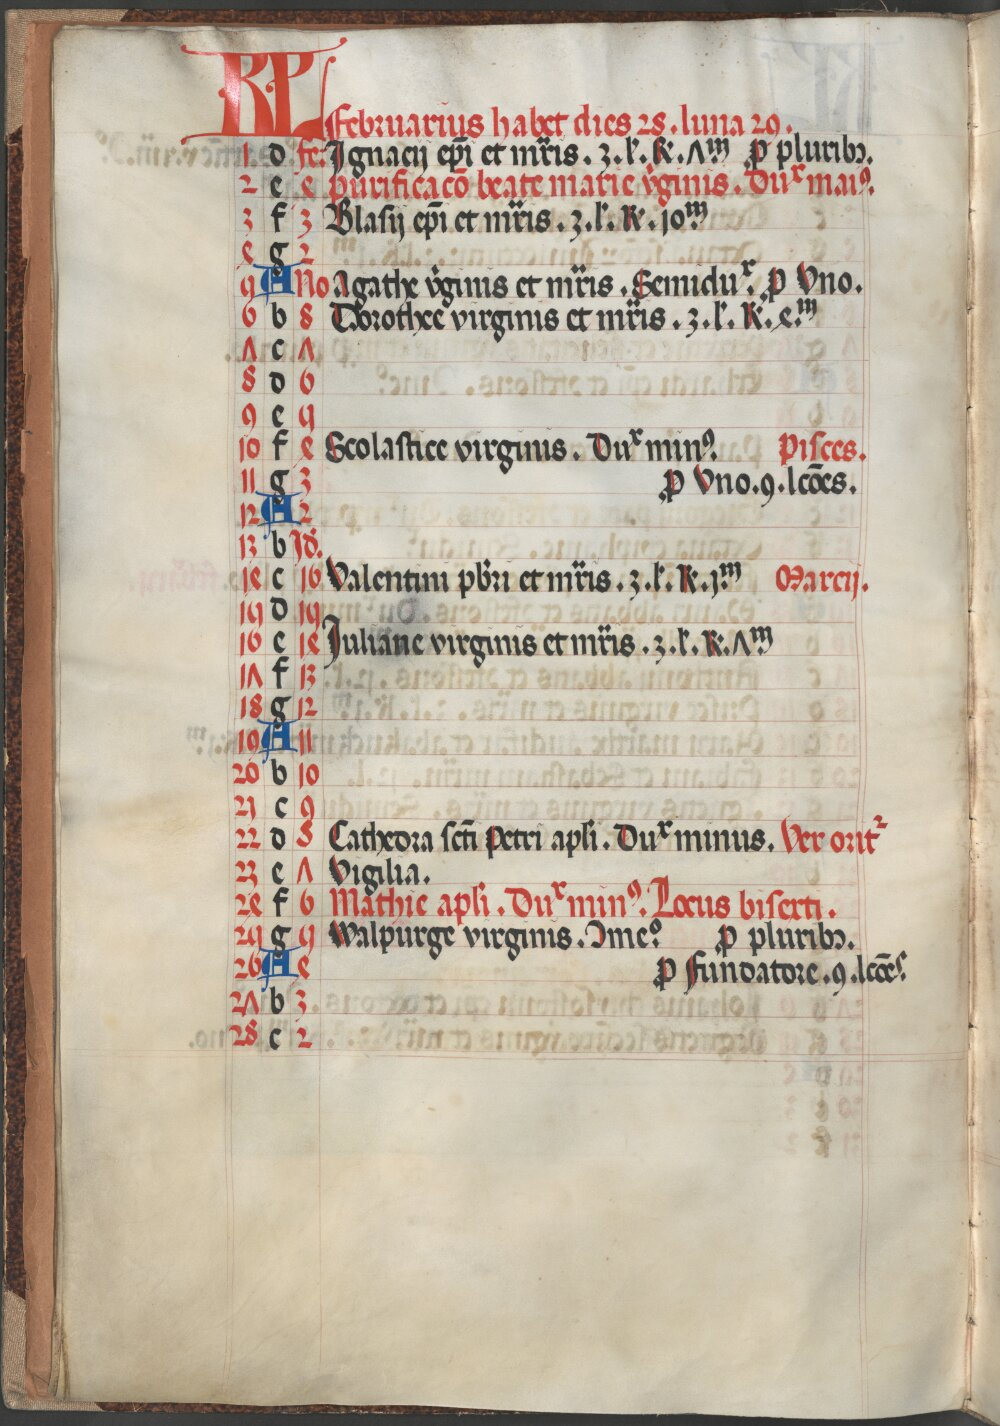 KL
Februarius habet dies 28. luna 29.
1 d fe: Ignacij ep̄i et mr̄is. 3. l'. K. Λm̄ ꝓ pluribꝫ.
2 e e purificac̄o beate marie v̇ginis. Dux maiꝰ.
3 f 3 Blasij ep̄i et mr̄is. 3. l'. K. 10m̄
e g 2
9 A No Agathe v̇ginis et mr̄is. Semidux. ꝓ Vno.
6 b 8 Dorothee virginis et mr̄is. 3. l'. K. e.m̄
Λ c Λ
8 d 6
9 e 9
10 f e Scolastice virginis. Dux minꝰ. Pisces.
11 g 3 ꝓ Vno. 9. lcōes.
12 A 2
13 b Id'.
1e c 16 Valentini pb̄ri et mr̄is. 3. l'. K. jm̄ Marcij.
19 d 19
16 e 1e Juliane virginis et mr̄is. 3. l'. K. Λm̄
1Λ f 13
18 g 12
19 A 11
20 b 10
21 c 9
22 d 8 Cathedra sc̄ti Petri apl̄i. Dux minus. Ver orit2
23 e Λ Vigilia.
2e f 6 Mathie apl̄i. Dux minꝰ. Locus biserti.
29 g 9 Walpurge virginis. Ɔmeꝰ ꝓ pluribꝫ.
26 A e ꝓ fundatore. 9. lcōes.
2Λ b 3
28 c 2